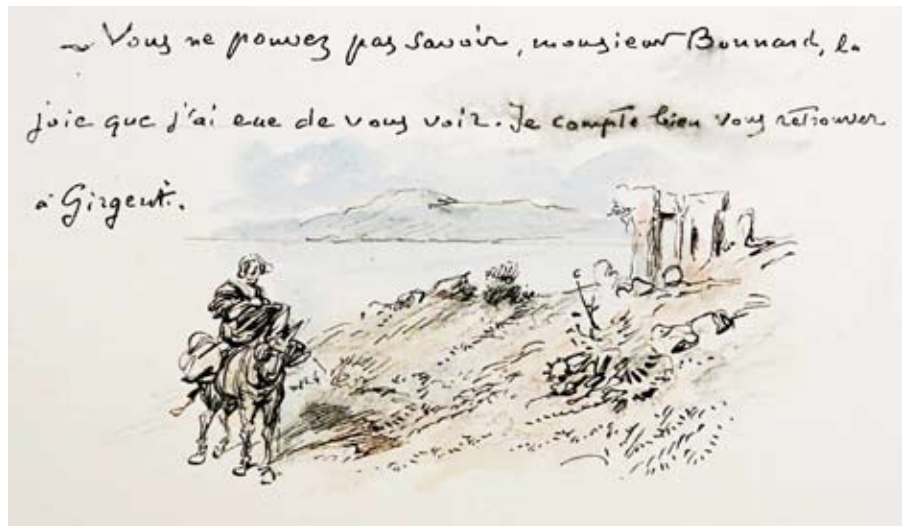 ~ Vous ne pouvez pas savoir, monsieur Bonnard, la
joie que j'ai eue de vous voir. Je compte bien vous retrouver
à Girgenti.